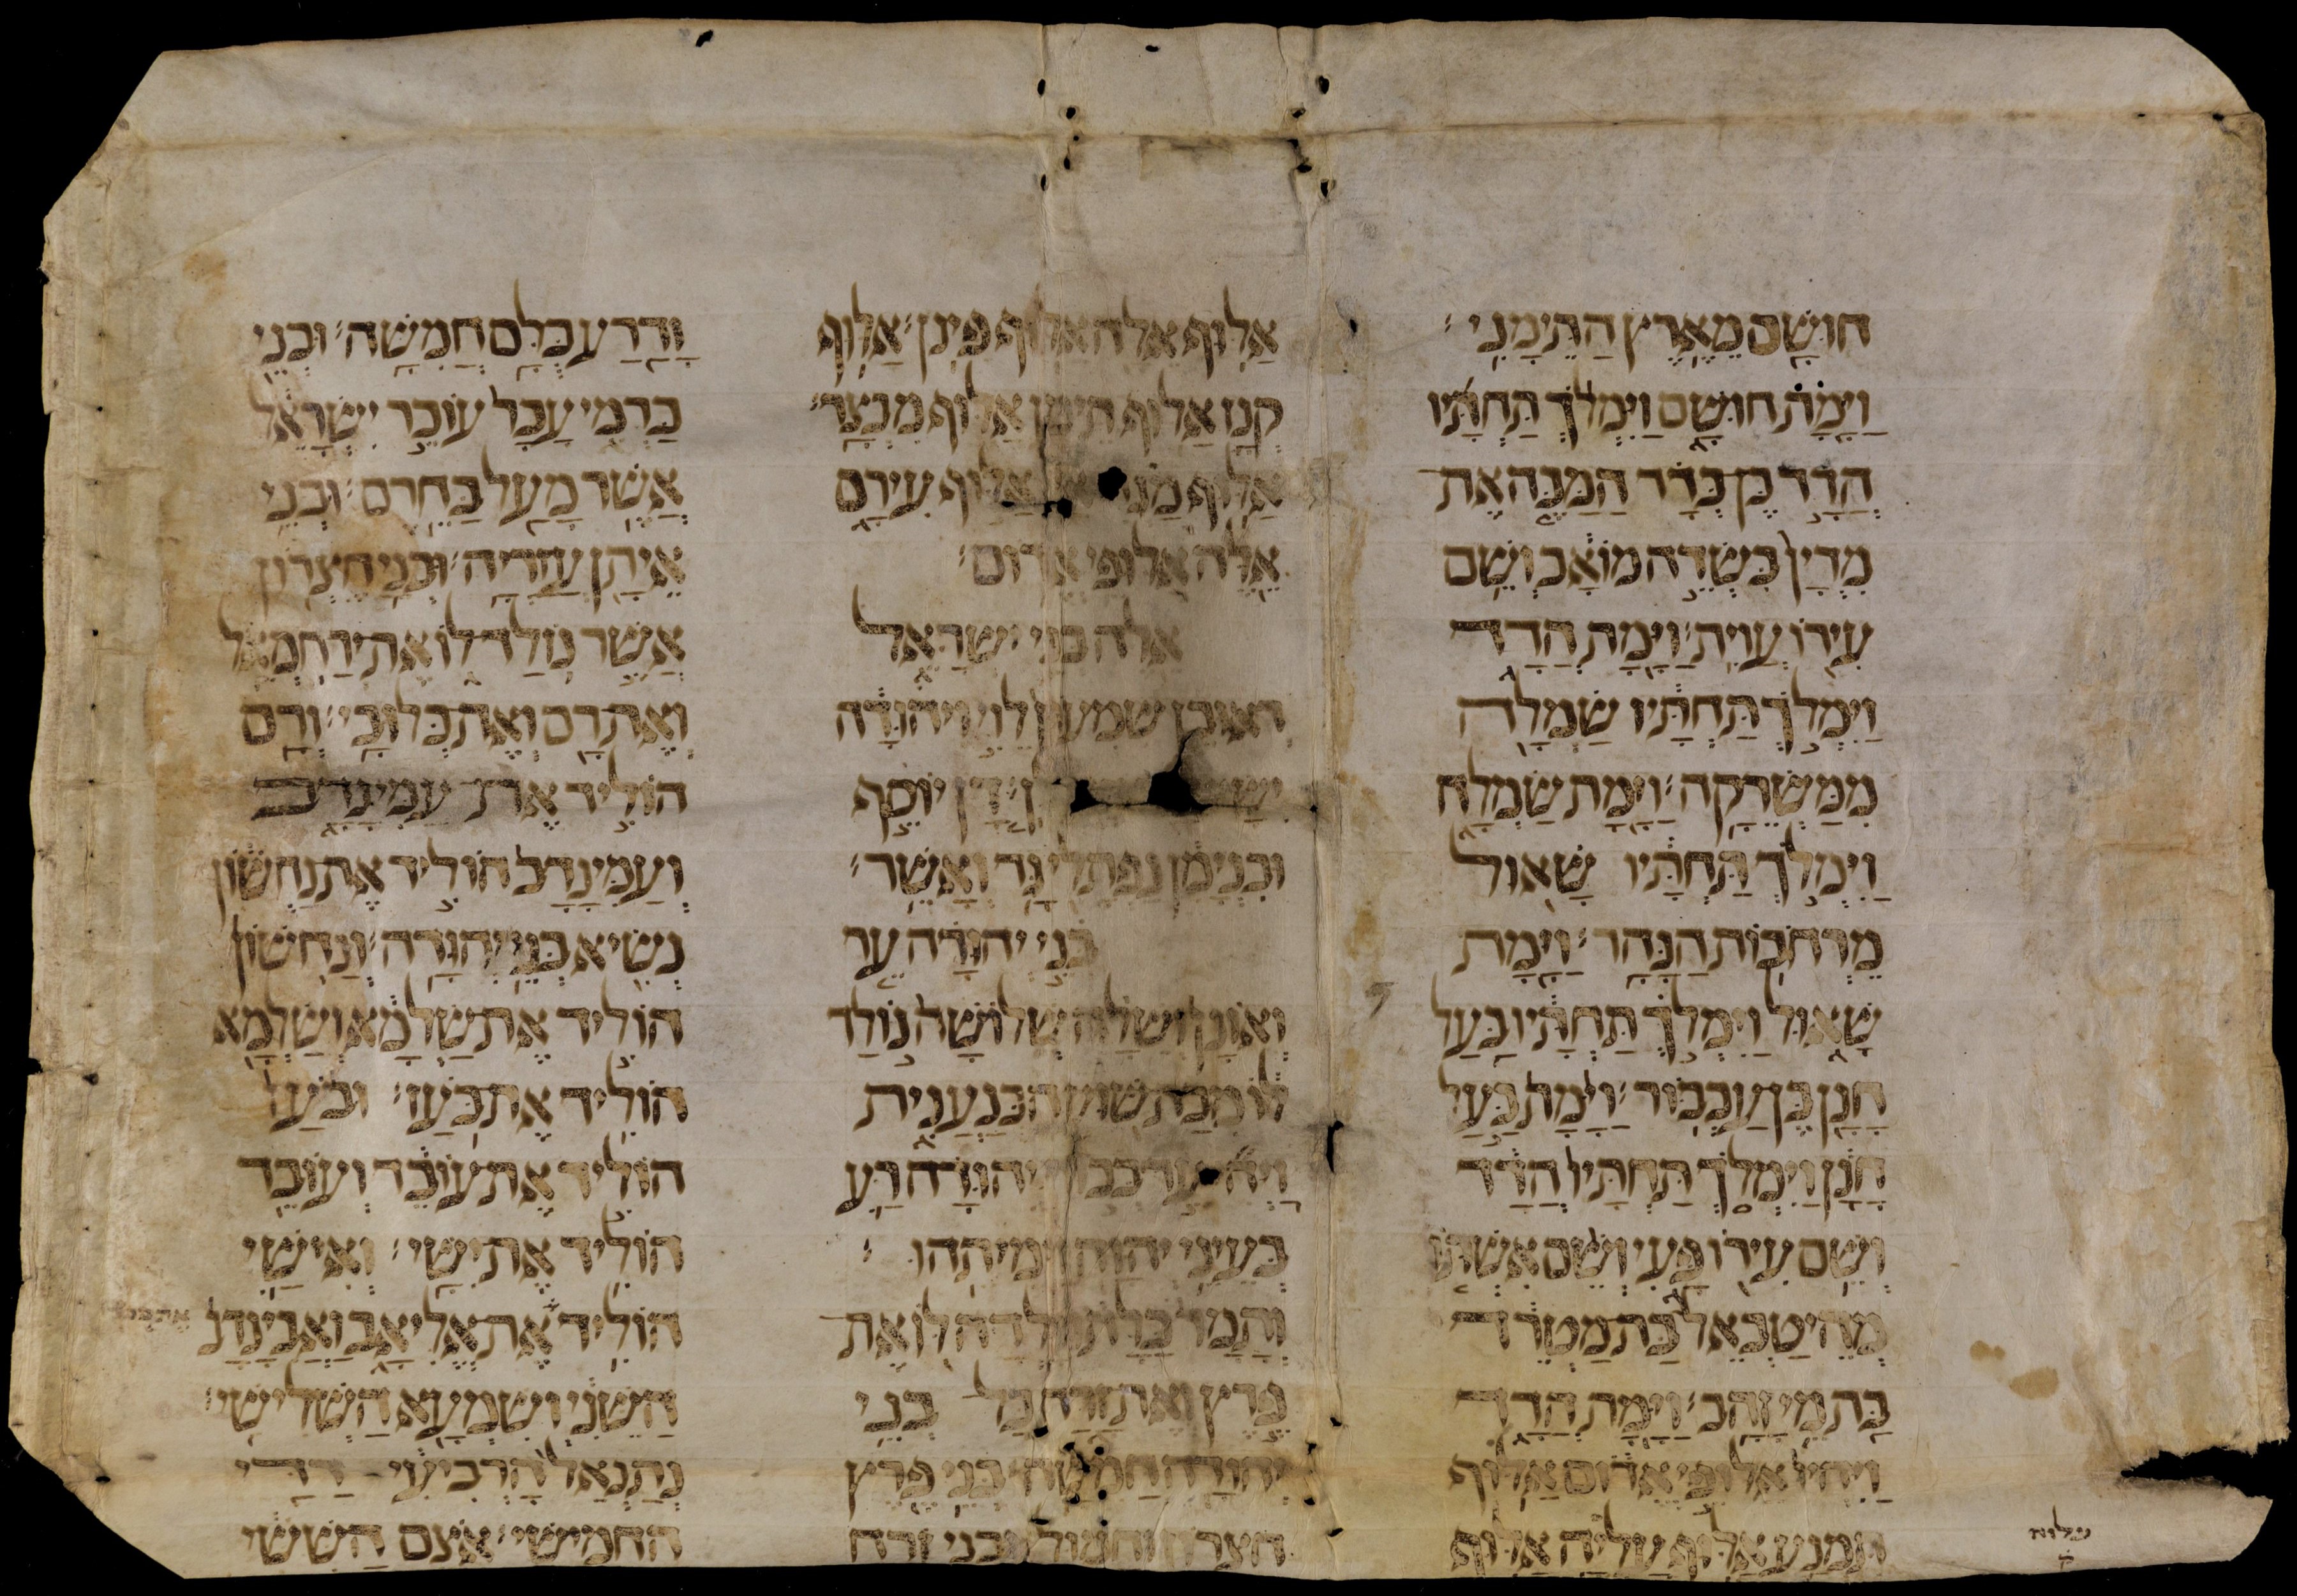 חושם מארץ התימני׃
וימת חושם וימלך תחתיו
הדד בן בדד המכה את
מדין בשדה מואב ושם
עירו עוית׃ וימת הדד
וימלך תחתיו שמלה
ממשרקה׃ וימת שמלה
וימלך תחתיו שאול
מרחבות הנהר׃ וימת
שאול וימלך תחתיו בעל
חנן בן עכבור׃ וימת בעל
חנן וימלך תחתיו הדד
ושם עירו פעי ושם אשתו
מהיטבאל בת מטרד
בת מי זהב׃ וימת הדד
ויהיו אלופי אדום אלוף
תמנע אלוף עליה אלוף
עלוה
ק
אלוף אלה אלוף פינן׃ אלוף
קנז אלוף תימן אלוף מבצר׃
אלוף עירם
אלה אלופי אדום׃
אלה בני ישראל
ראובן שמעון לוי ויהודה
דן יוסף
ובנימן נפתלי גד ואשר׃
בני יהודה ער
ואונן ושלה שלושה נולד
לו מבת שוע הכנענית
ויהי ער בכור יהודה רע
בעיני יהוה וימיתהו׃
ותמר כלתו ילדה לו את
פרץ ואת זרח כל בני
יהודה חמשה׃ בני פרץ
חצרון וחמול׃ ובני זרח
ודרע כלם חמשה׃ ובני
כרמי עכר עוכר ישראל
אשר מעל בחרם׃ ובני
איתן עזריה׃ ובני חצרון
אשר נולד לו את ירחמאל
ואת רם ואת כלובי׃ ורם
הוליד את עמינדב
ועמינדב הוליד את נחשון
נשיא בני יהודה׃ ונחשון
הוליד את שלמא ושלמא
הוליד את בעז׃ ובעז
הוליד את עובד ועובד
הוליד את ישי׃ ואישי
הוליד את אליאב ואבינדב
השני ושמעא השלישי׃
נתנאל הרביעי רדי
החמישי׃ אצם הששי